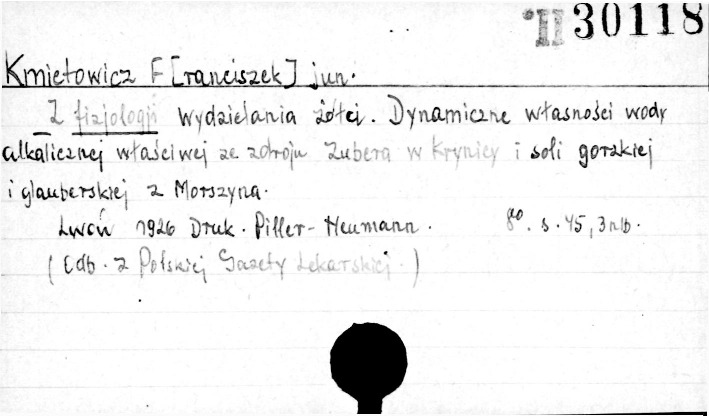 II 30118
Kmietowicz F[ranciszek] jun.
Z fizjologji wydzielania żółci. Dynamiczne własności wody
alkalicznej właściwej ze zdroju Zubera w Krynicy i soli gorzkiej
i glauberskiej z Morszyna.
Lwów 1926 Druk. Piller-Neumann. 8º. s. 45, 3 nlb.
(Odb. z Polskiej Gazety Lekarskiej.)